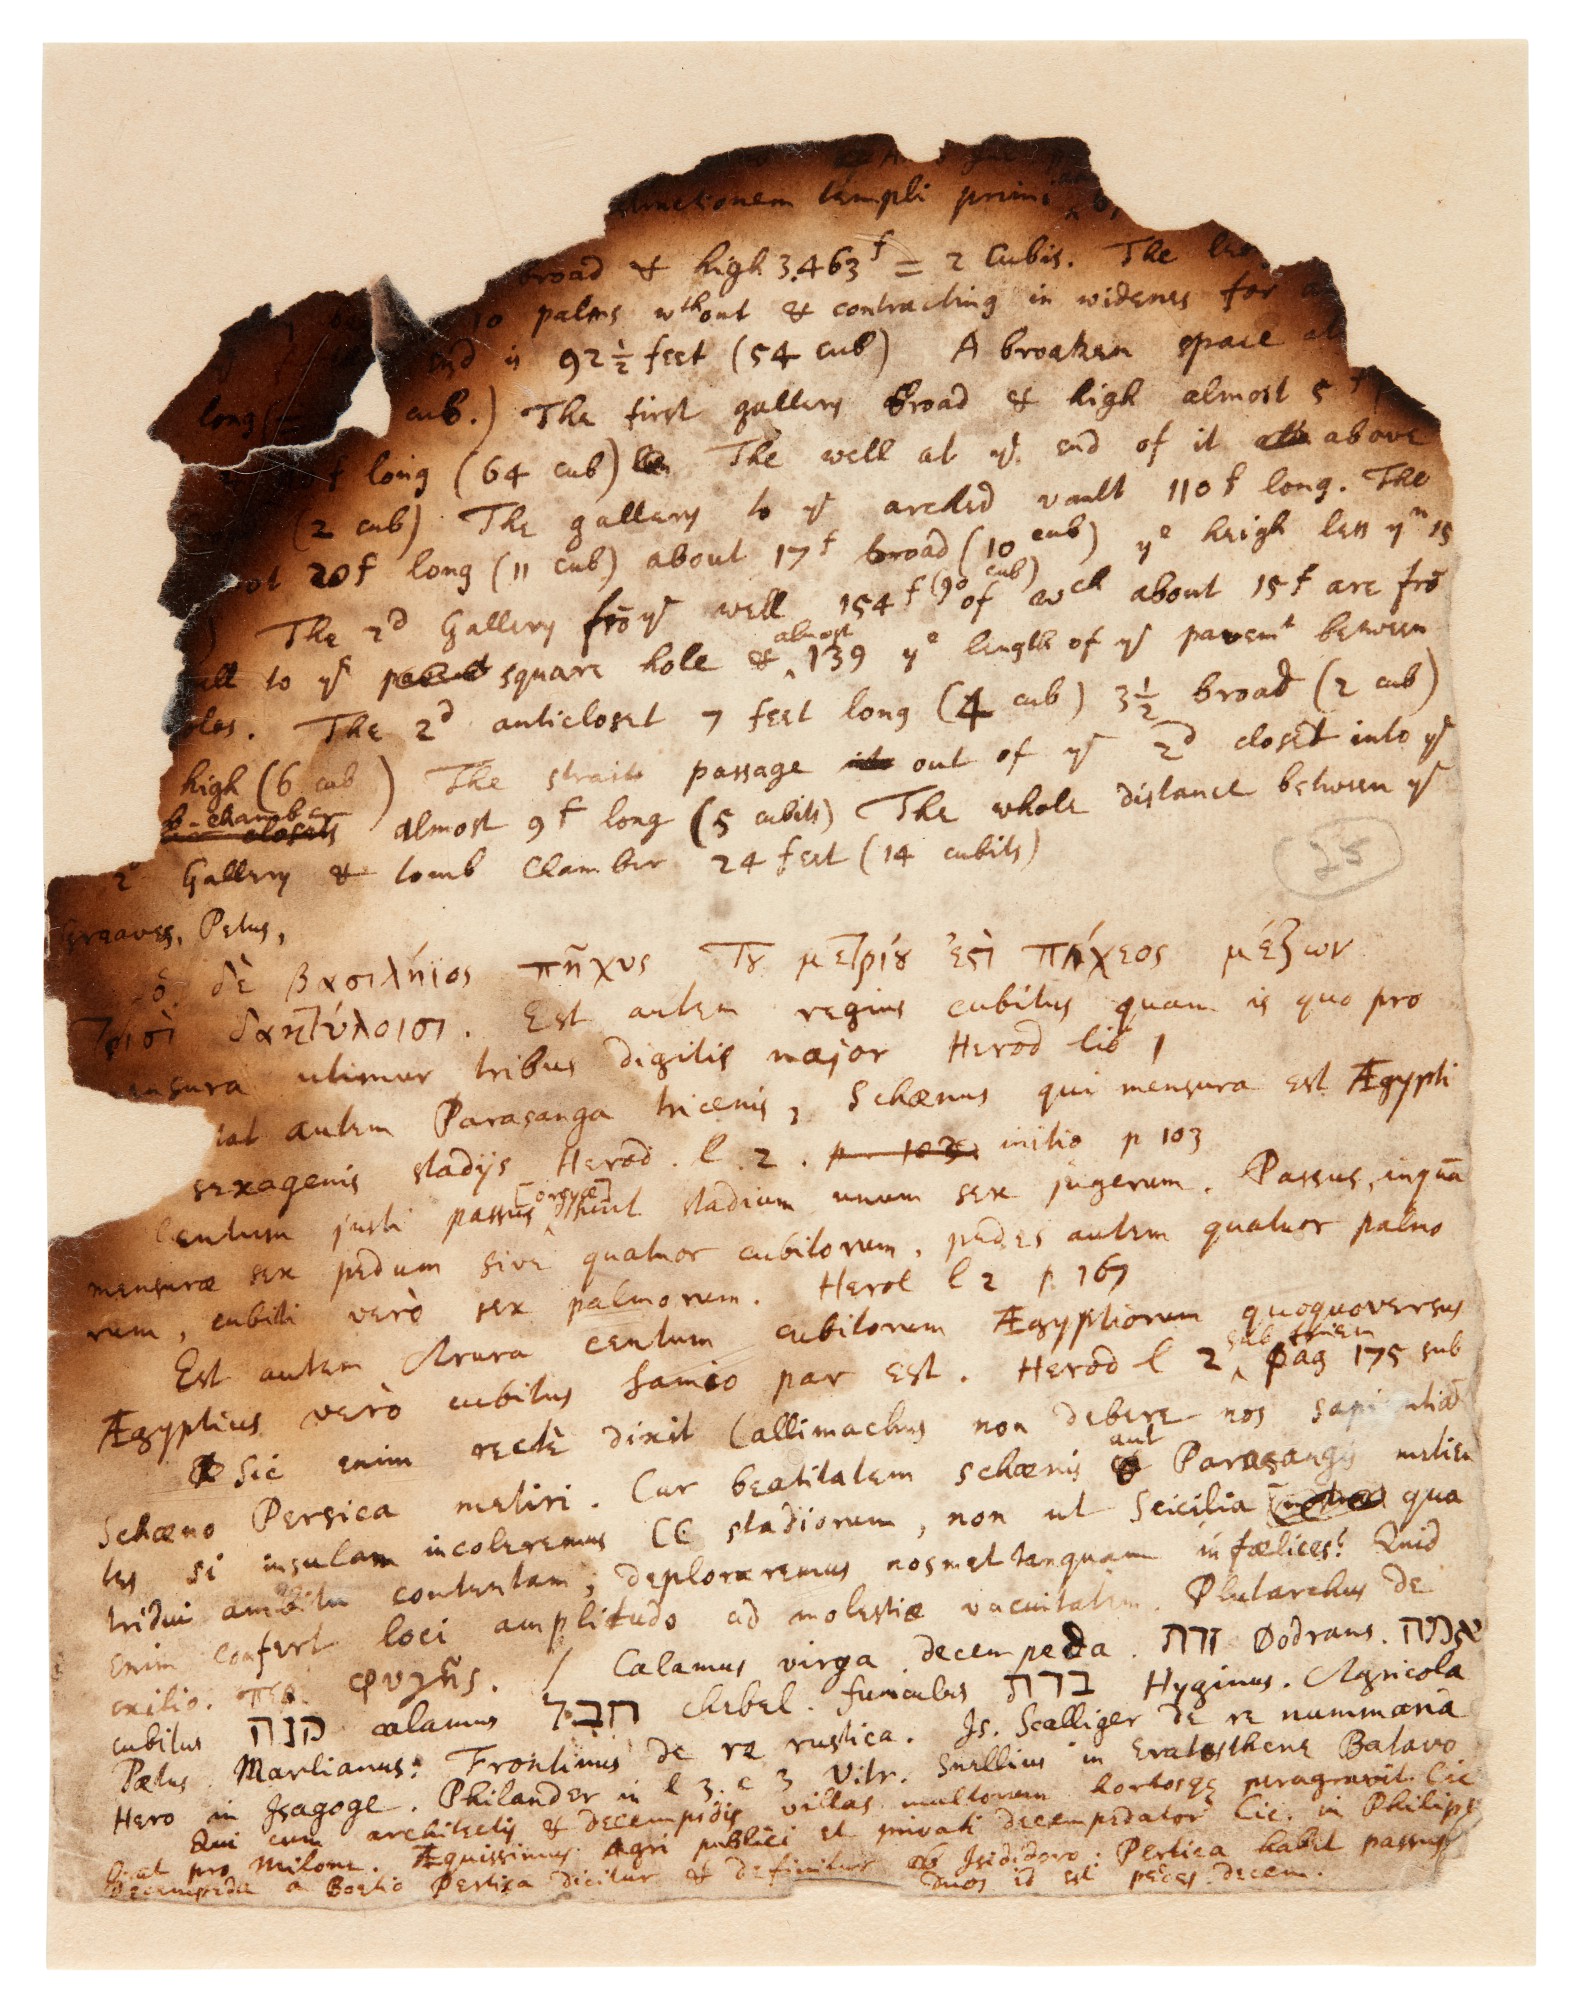 templi primi
broad & high 3.463f = 2 Cubits. The
10 palms wthout & contracting in widenes for
end is 92½ feet (54 cub) A broaken space
long cub.) The first gallery broad & high almost 5
f long (64 cub) The well at ye end of it above
(2 cub) The gallery to ye arched vault 110f long. The
20f long (11 cub) about 17f broad (10 cub) ye heigh less yn 15
The 2d Gallery frō ye well 154f (90 cub) of wch about 15f are frō
to ye square hole & almost 139 ye length of ye pavemt between
The 2d anticloset 7 feet long (4 cub) 3½ broad (2 cub)
high (6 cub) The strait passage out of ye 2d closet into ye
b-chamber closets almost 9f long (5 cubits) The whole distance between ye
2d Gallery & tomb Chamber 24 feet (14 cubits)
25
Greaves, Petus,
ὁ δὲ βασιλήϊος πῆχυς τȣ μετρίȣ ἐστὶ πήχεος μέζων
τρισὶ δακτύλοισι. Est autem regius cubitus quam is quo pro
mensura utimur tribus digitis major Herod lib 1
autem Parasanga tricenis, Schœnus qui mensura est Ægypti
sexagenis stadijs Herod. l. 2. p 103 initio p 103
Centum justi passus [orgyæ] sunt stadium unum sex jugerum. Passus, inquā
mensuræ sex pedum sive quatuor cubitorum, pedes autem quatuor palmo
rum, cubiti verò sex palmorum. Herod l 2 p. 167
Est autem Arura centum cubitorum Ægyptiorum quoquoversus
Ægyptius verò cubitus Samio par est. Herod l 2 sub finem pag 175 sub
Sic enim rectè dixit Callimachus non debere nos sapientiam
Schœno Persica metiri. Cur beatitatem schœnis aut Parasangis metien
tes si insulam incoleremus CC stadiorum, non ut Seicilia qua
tridui ambitu contentam; deploraremus nosmet tanquam infœlices? Quid
enim confert loci amplitudo ad molestiæ vacuitatem. Plutarchus de
exilio. περ φυγῆς. / Calamus virga decempeda. זרת Dodrans. אמה
cubitus קנה calamus חבל chebel. funiculus ברת Hyginus. Agricola
Pætus Marlianus: Frontinus de re rustica. Js. Scalliger de re nummaria
Hero in Jsagoge. Philander in l 3. c 3 Vitr. Snellius in Eratosthene Batavo
Qui cum architectis & decempedis villas multorum hortosqe peragravit. Cic
pro Milone. Æquissimus Agri publici et privati decempedator Cic. in Philip
Decempeda a Boetio Pertica dicitur & definitur ab Jsididoro: Pertica habet passus
duos id est pedes decem.